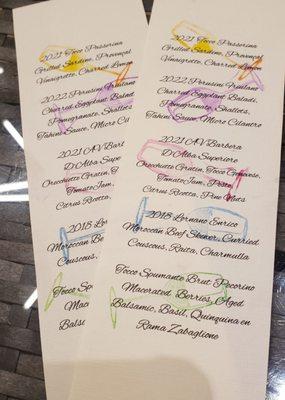 2021 Toco Passerina
Grilled Sardine, Provençal
Vinaigrette, Charred Lemon
2022 Perusini Friulano
Charred Eggplant Baladi,
Pomegranate, Shallots,
Tahini Sauce, Micro Cil
2021 AV Barb
D'Alba Supe
Orecchiette Gratin, T
Tomato Jam,
Citrus Rotta,
2018 Lo
Moroccan Be
Couscous,
Tocco Sp
Mace
Balsa
2021 Toco Passerina
Grilled Sardine, Provençal
Vinaigrette, Charred Lemon
2022 Perusini Friulano
Charred Eggplant Baladi,
Pomegranate, Shallots,
Tahini Sauce, Micro Cilantro
2021 AV Barbera
D'Alba Superiore
Orecchiette Gratin, Toco
Tomato Jam, Pesto
Citrus Ricotta, Pine Nuts
2018 Lornano Enrico
Moroccan Beef Skewer, Curried
Couscous, Raita, Charmulla
Tocco Spumante Brut Pecorino
Macerated Berries, Aged
Balsamic, Basil, Quinquina en
Rama Zabaglione